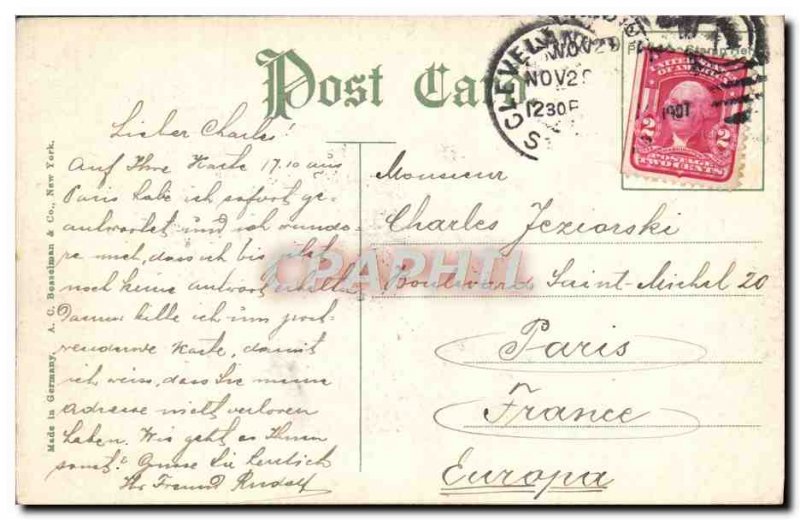 Post Card
CLEVELAND
NOV 29
1230P
1907
UNITED STATES
OF AMERICA
2 2
POSTAGE
TWO CENTS
Lieber Charles!
Auf Ihre Karte 17.10 aus
Paris habe ich sofort ge-
antwortet und ich wunde-
re mich, dass ich bis jetzt
noch keine antwort
bitte ich um
Karte, damit
ich weiss, dass Sie meine
adresse nicht verloren
haben. Wie geht es Ihnen
sonst? Grüsse Sie herzlich
Ihr Freund Rudolf
Monsieur
Charles Jeziorski
Boulevard Saint-Michel 20
Paris
France
Europa
Made in Germany. A. C. Bosselman & Co., New York.
CPAPHIL